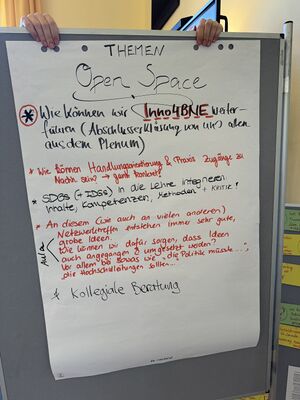 THEMEN
Open Space
* Wie können wir Inno4BNE weiter-
führen (Abschlusserklärung von uns allen
aus dem Plenum)
* Wie können Handlungsorientierung & Praxis Zugänge zu
Nachh. sein? → ganz konkret?
* SDGs (+ IDGs) in die Lehre integrieren
Inhalte, Kompetenzen, Methoden + Kritik!
* An diesem (wie auch an vielen anderen)
Netzwerktreffen entstehen immer sehr gute,
große Ideen.
Wie können wir dafür sorgen, dass Ideen
auch angegangen & umgesetzt werden?
Vor allem bei sowas wie „die Politik müsste...";
„die Hochschulleitungen sollten...
* Kollegiale Beratung